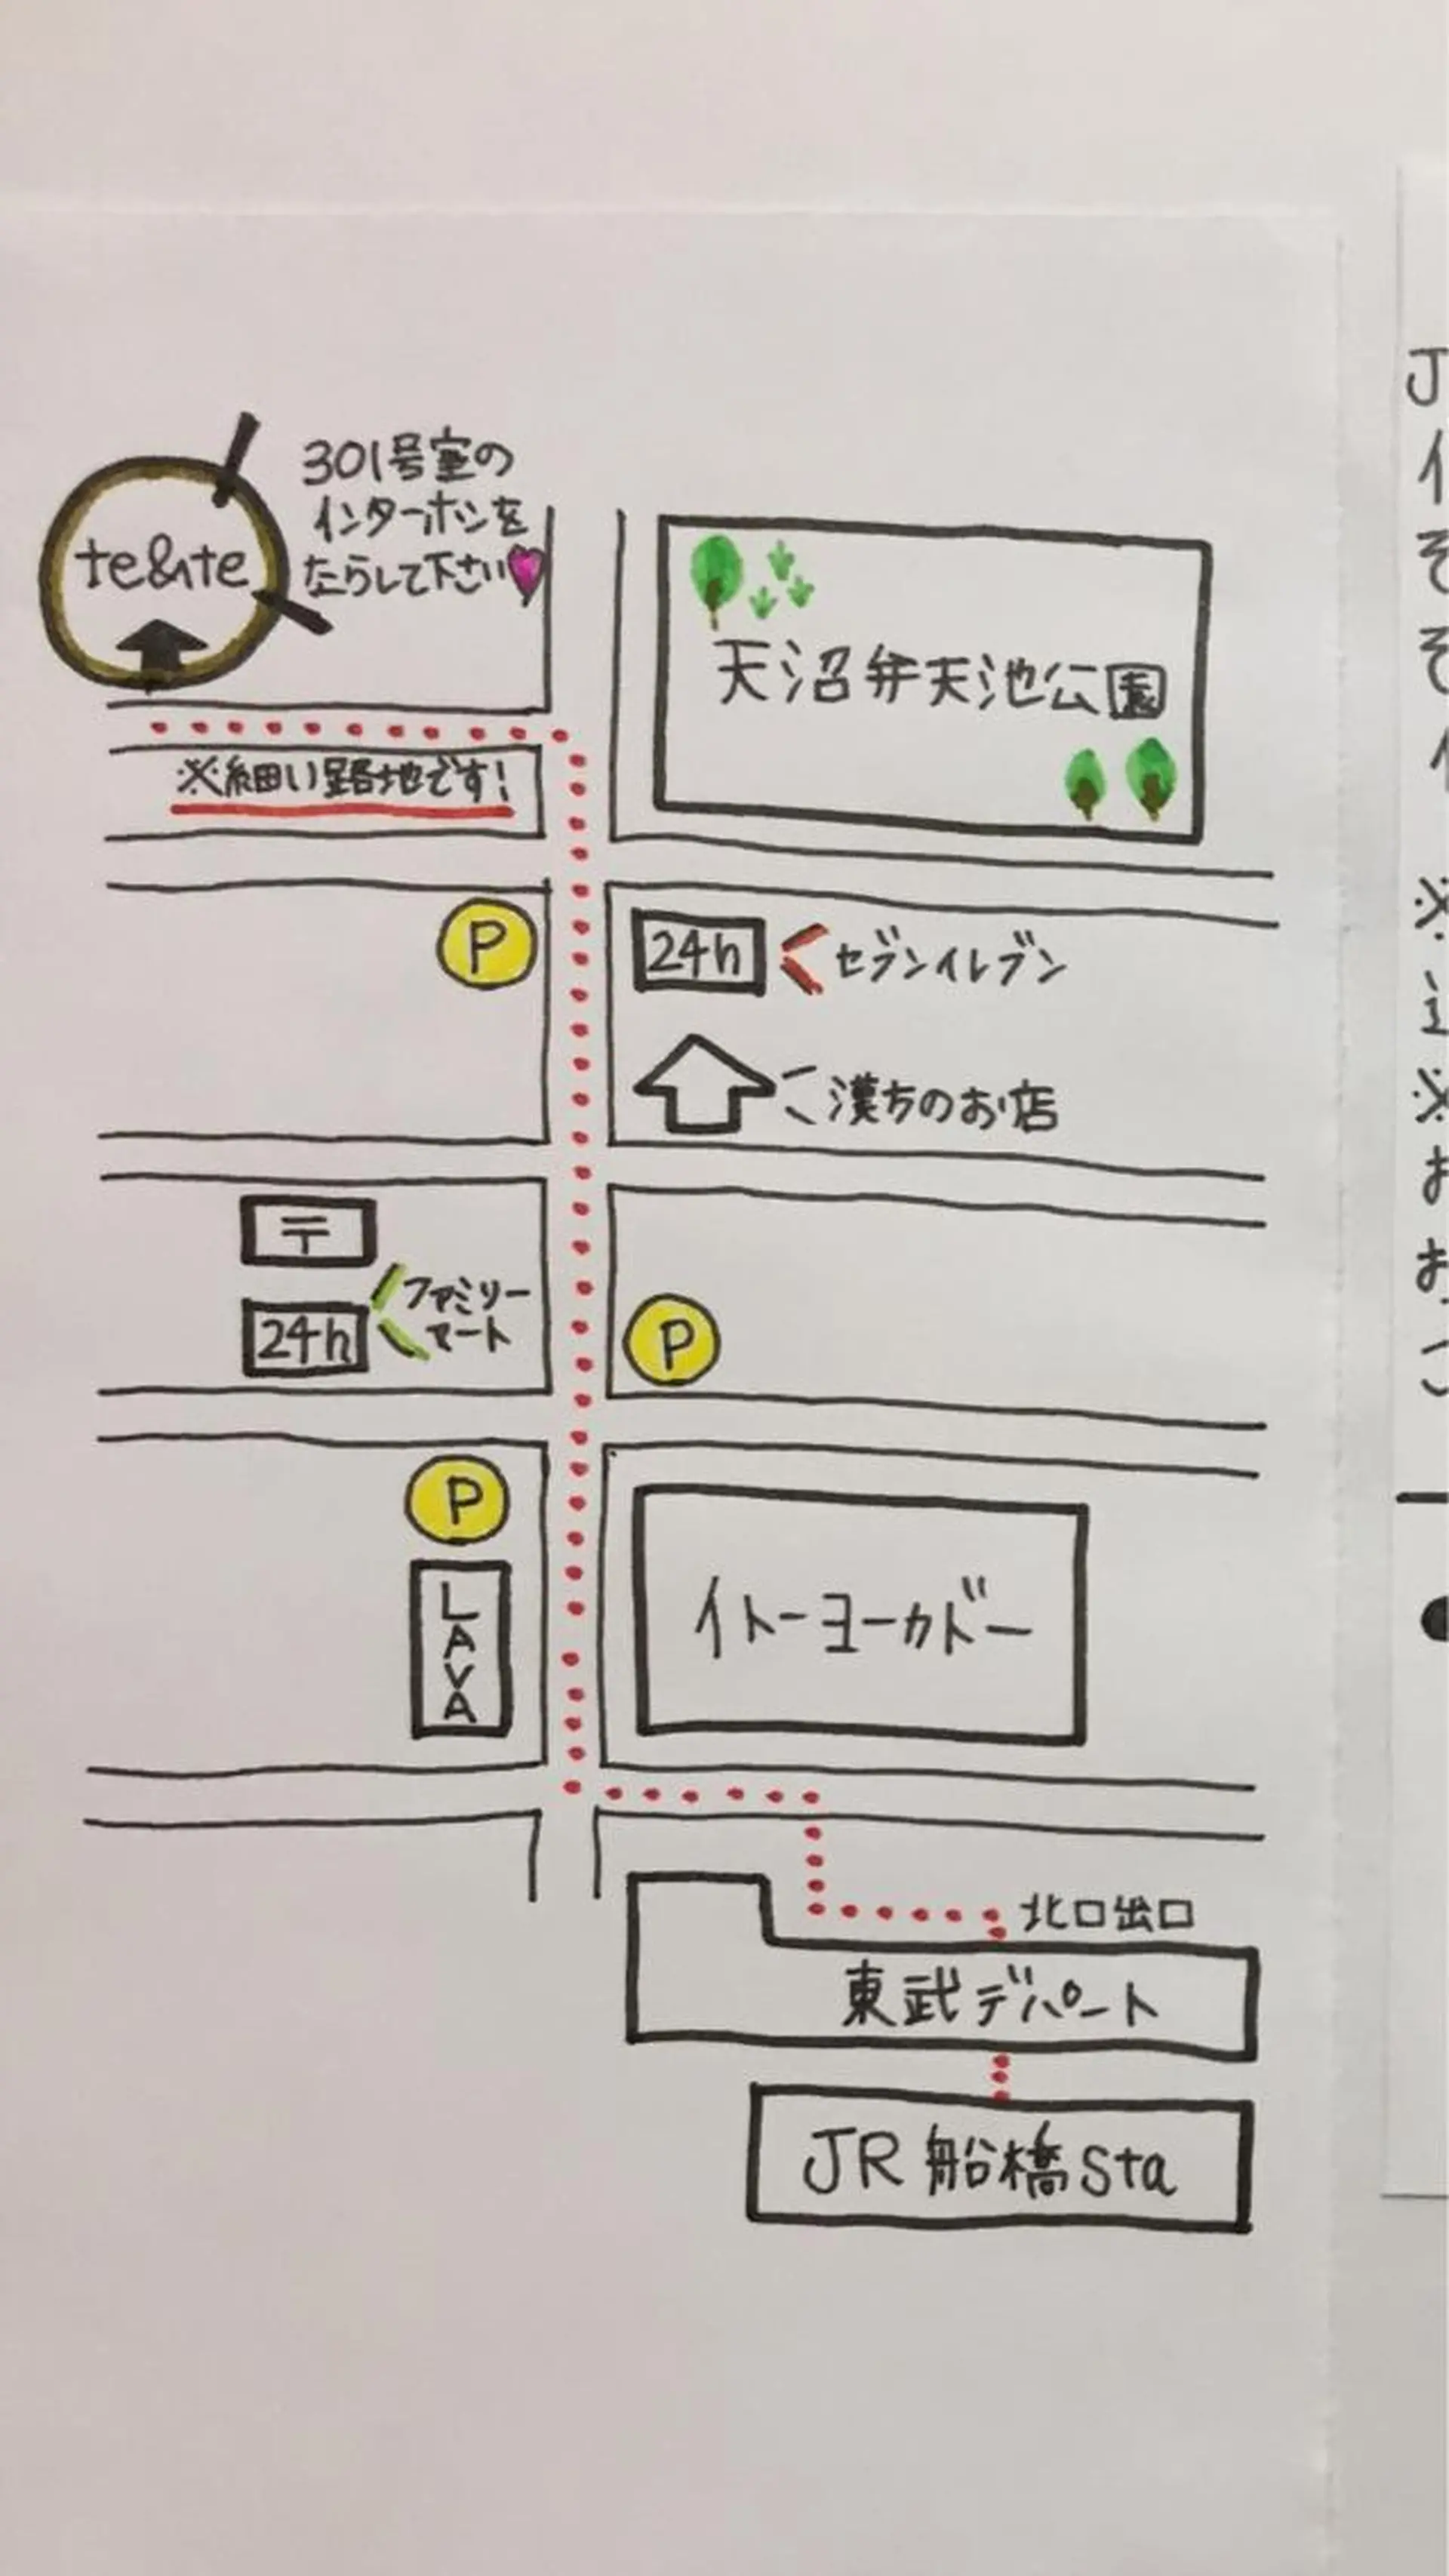 301号室の
インターホンを
たらして下さい
te&te
天沼弁天池公園
※細い路地です!
P
24h
セブンイレブン
漢方のお店
〒
ファミリー
マート
24h
P
P
LAVA
イトーヨーカドー
北口出口
東武デパート
JR船橋Sta
J
そ
そ
※
※
お
お